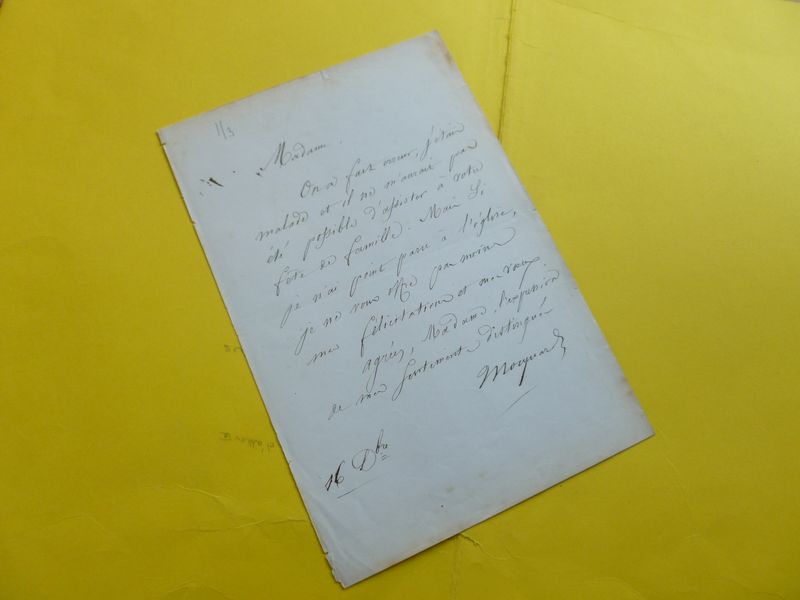 1/3
Madame.
On a fait erreur, j'étais
malade et il ne m'aurait pas
été possible d'assister à votre
fête de famille. Mais si
je n'ai point paru à l'église,
je ne vous offre pas moins
mes félicitations et mes vœux
agréez, Madame, l'expression
de mes sentiments distingués
Mocquard
16 Dbre